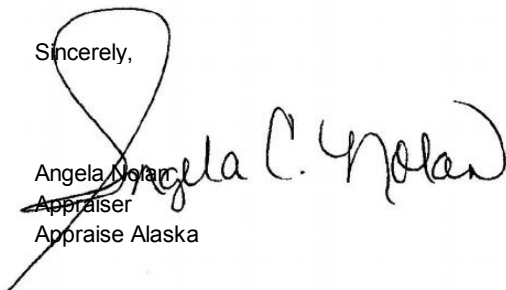 Sincerely,
Angela C. Nolan
Angela Nolan
Appraiser
Appraise Alaska